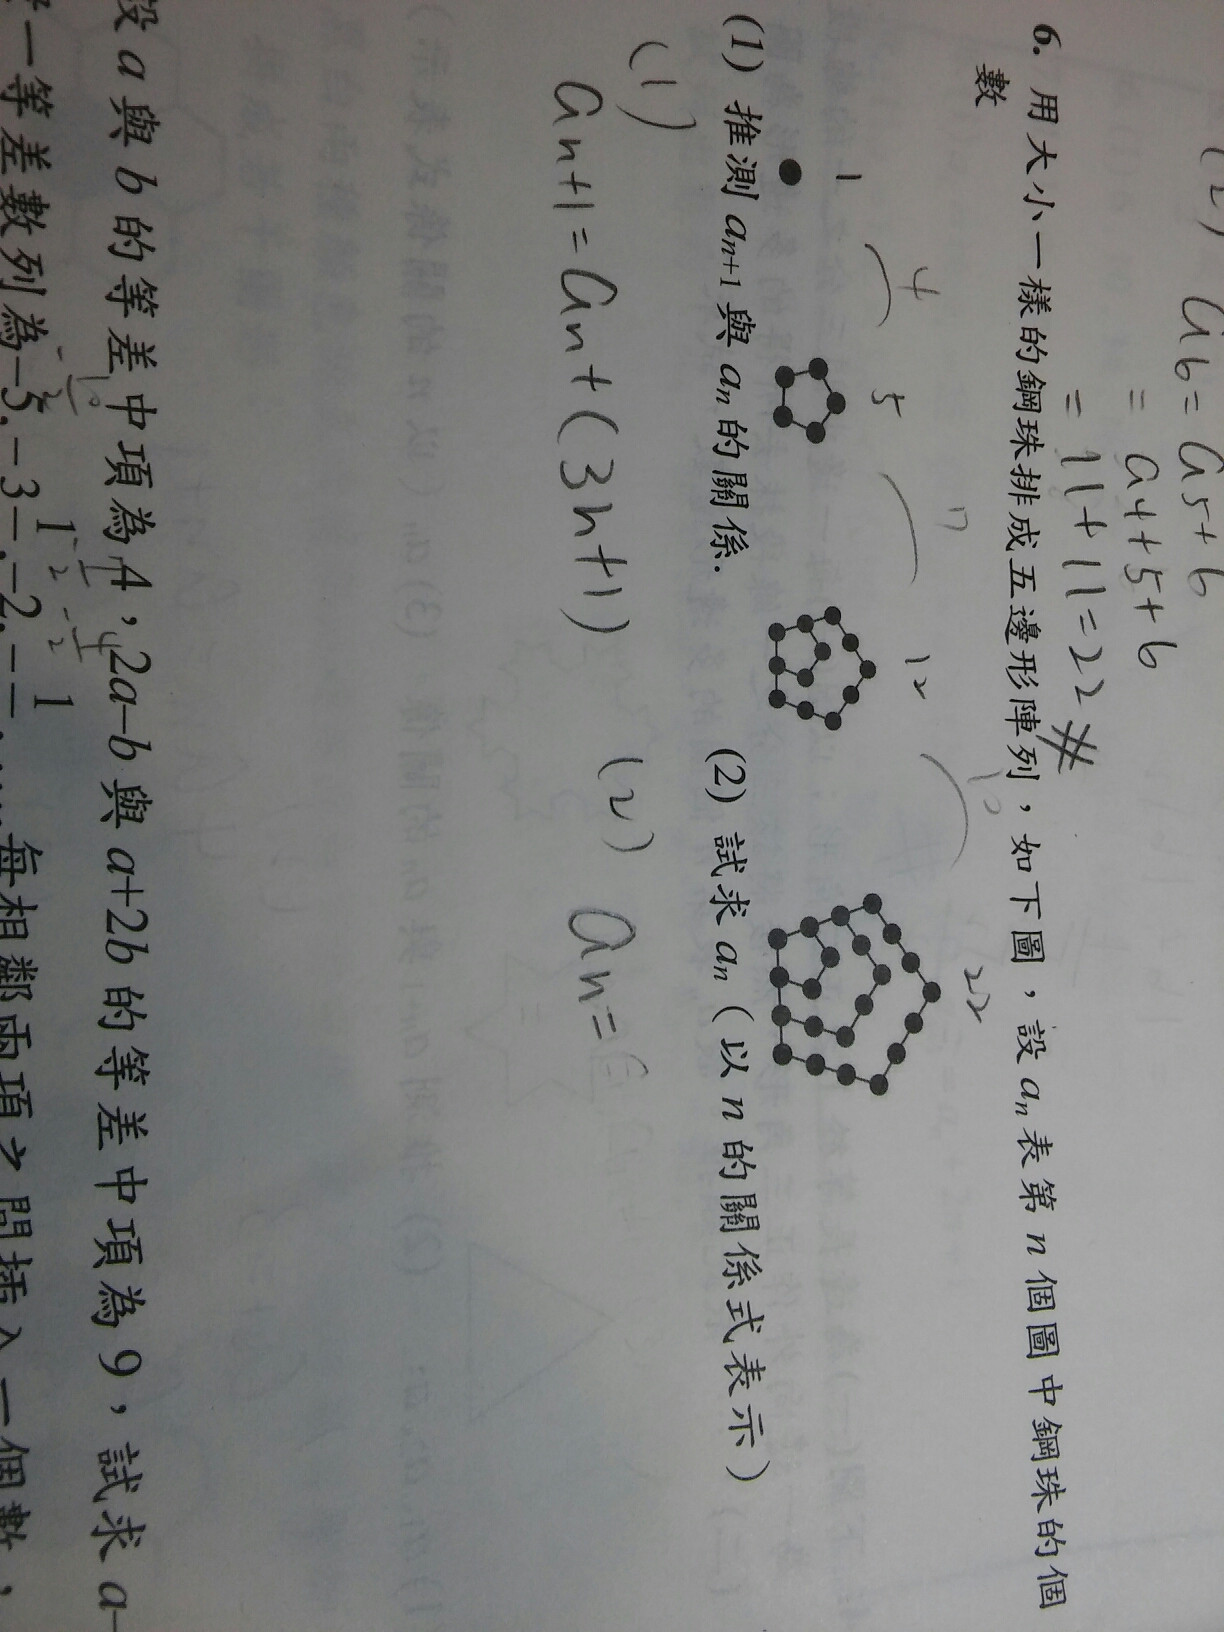 (2) a6=a5+6
=a4+5+6
=11+11=22#
6. 用大小一樣的鋼珠排成五邊形陣列，如下圖，設 an 表第 n 個圖中鋼珠的個
數
1 5 12 22
4 7 10
(1) 推測 an+1 與 an 的關係. (2) 試求 an（以 n 的關係式表示）
(1) (2)
an+1=an+(3n+1) an=
設 a 與 b 的等差中項為 4，2a−b 與 a+2b 的等差中項為 9，試求 a
一等差數列為−5,−3 1/2,−2, 每相鄰兩項之間插入一個數，